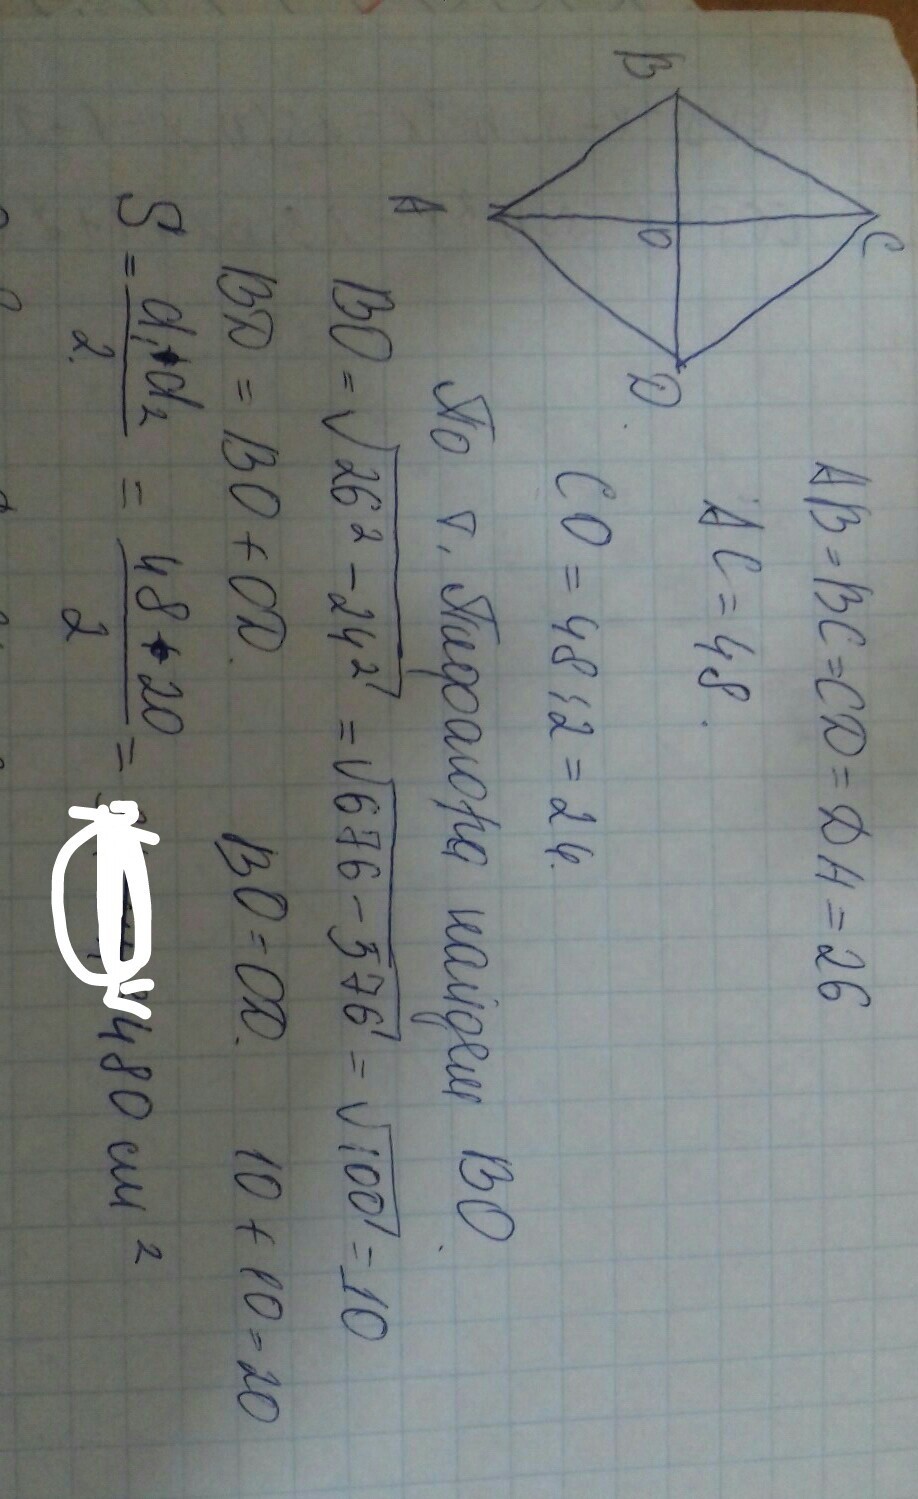 B
C
O
A
D
AB=BC=CD=DA=26
AC=48.
CO=48:2=24.
По т. Пифагора найдем BO.
BO=√26²-24²=√676-576=√100=10
BD=BO+OD. BO=OD. 10+10=20
S=d₁*d₂/2=48*20/2= 480 см²